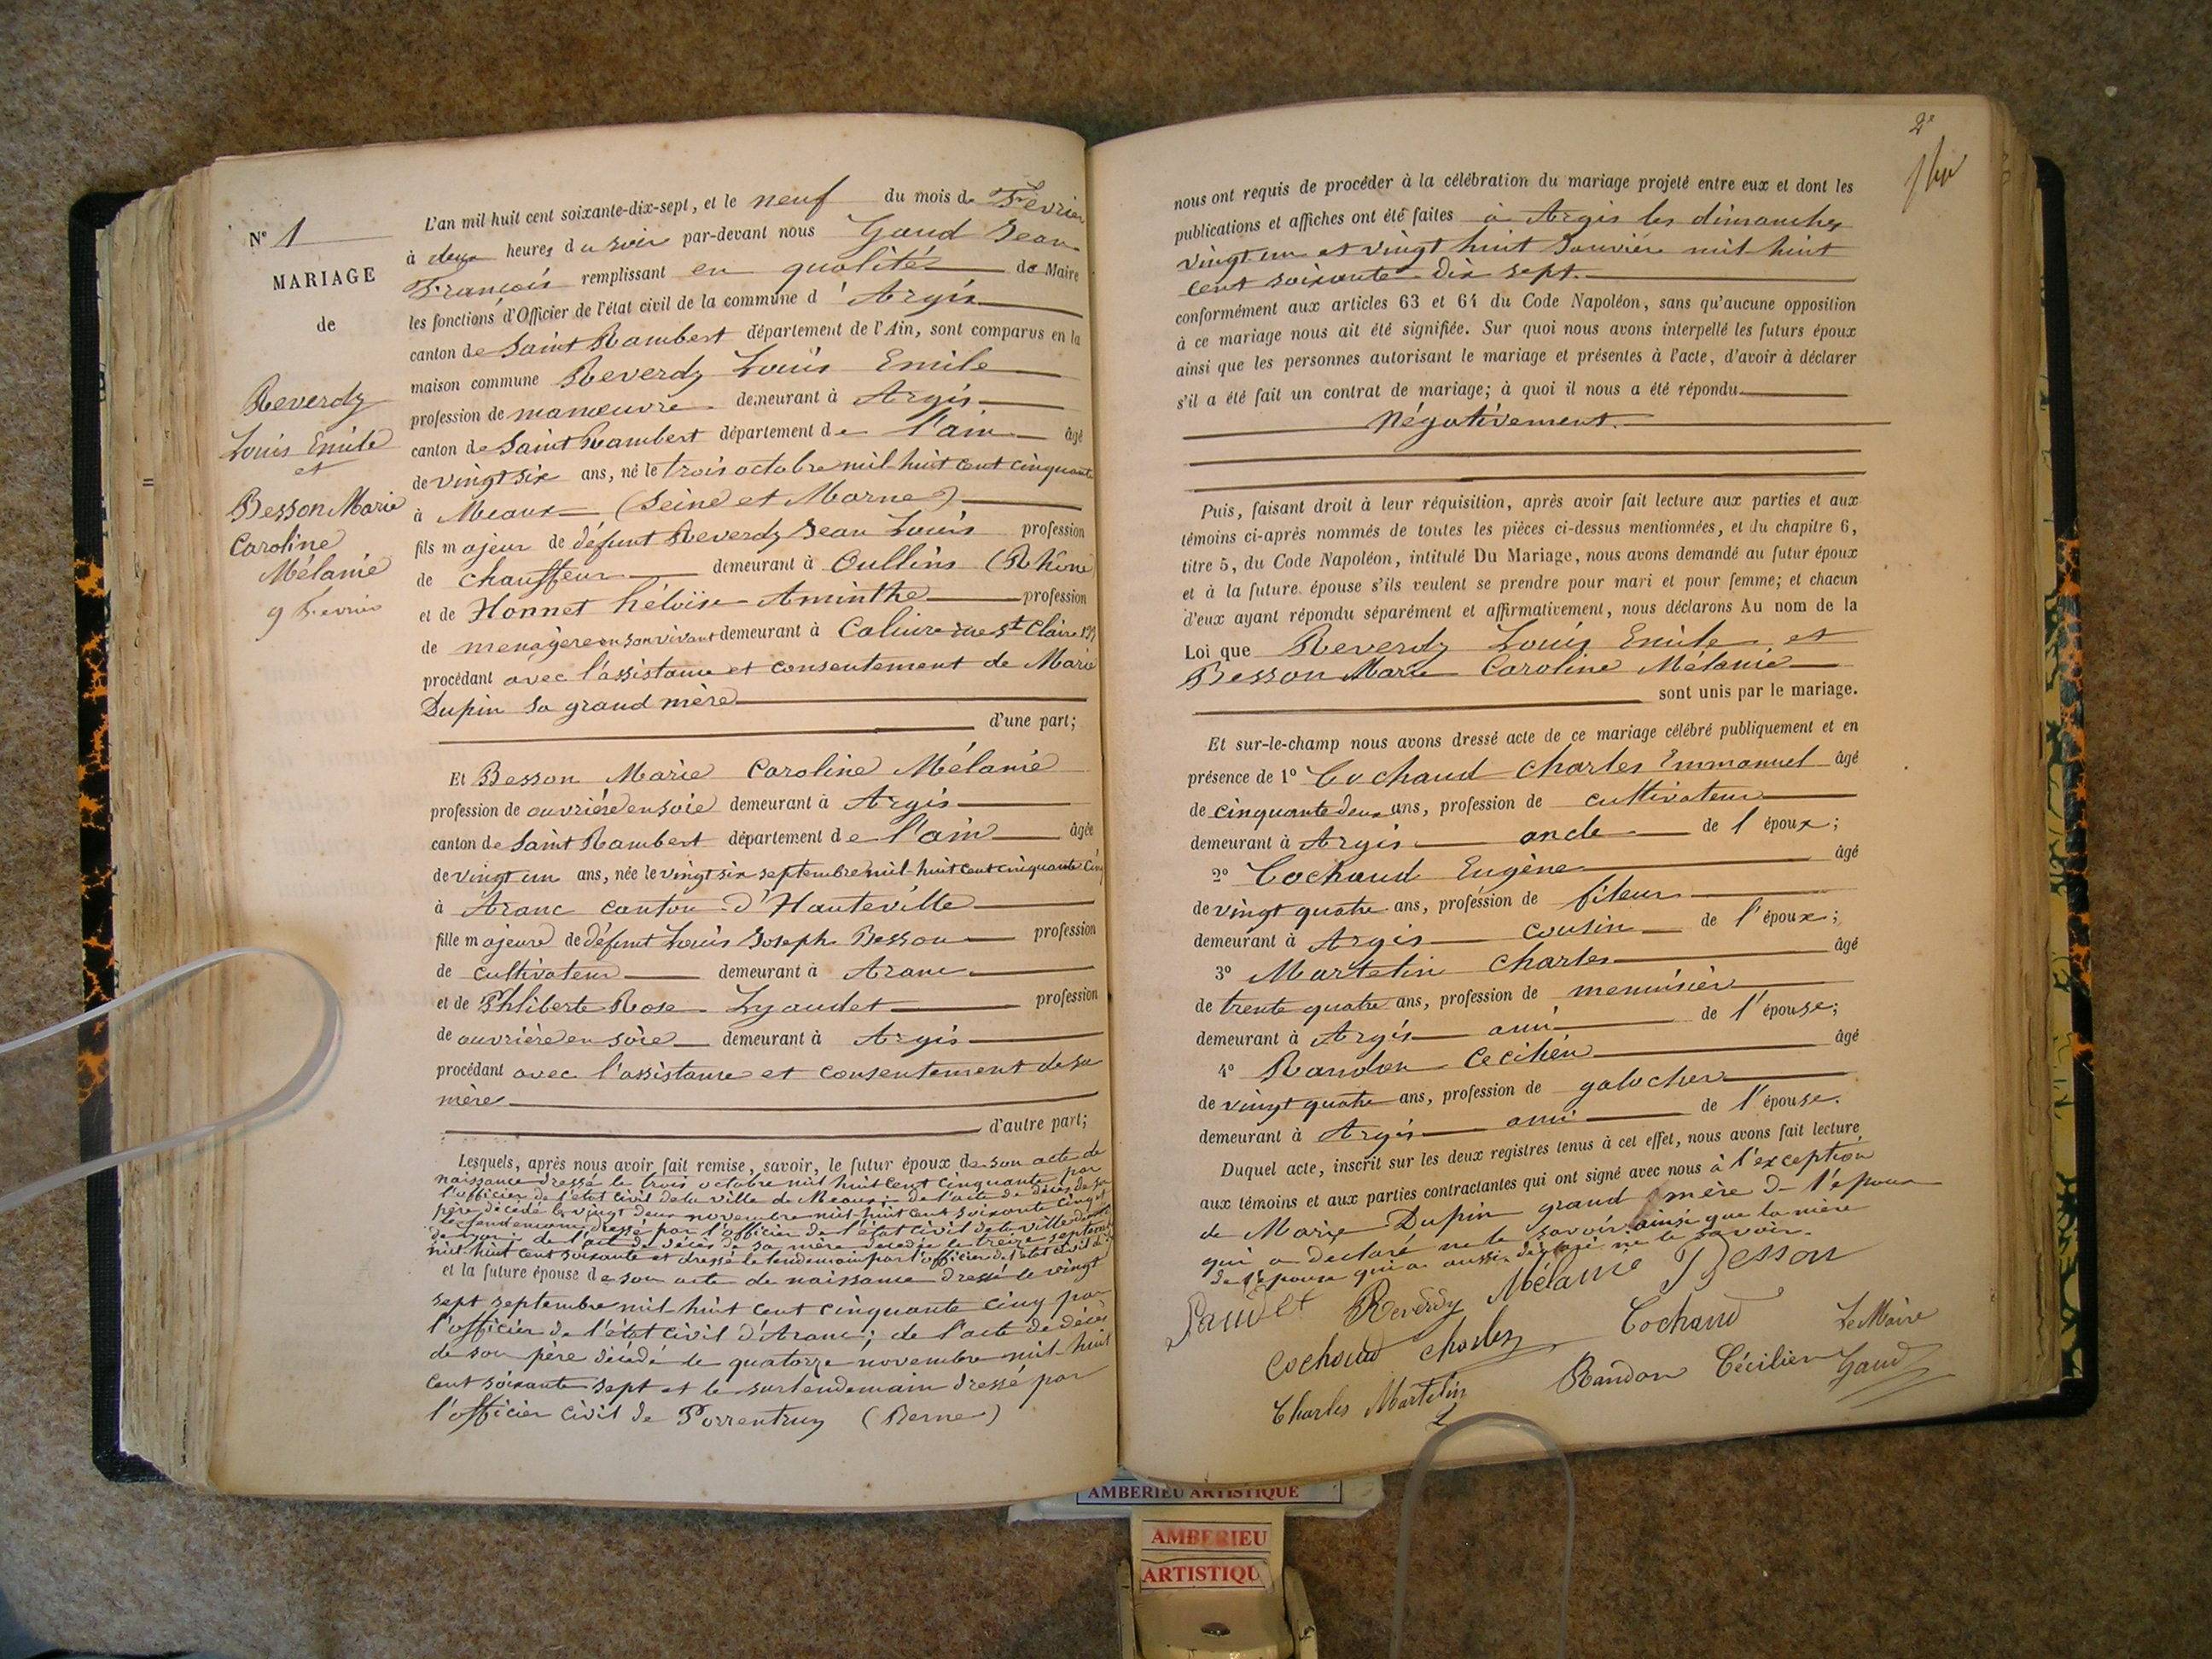 N° 1
MARIAGE
de
Reverdy
Louis Emile
et
Besson Marie
Caroline
Mélanie
9 Fevrier
L'an mil huit cent soixante-dix-sept, et le neuf du mois de Fevrier
à deux heures du soir par-devant nous Gaud Jean
François remplissant en qualité de Maire
les fonctions d'Officier de l'état civil de la commune d'Argis
canton de Saint Rambert département de l'Ain, sont comparus en la
maison commune Reverdy Louis Emile
profession de manœuvre demeurant à Argis
canton de Saint Rambert département de l'ain âgé
de vingt six ans, né le trois octobre mil huit cent cinquante
à Meaux (Seine et Marne)
fils majeur de défunt Reverdy Jean Louis profession
de chauffeur demeurant à Oullins (Rhône
et de Honnet héloïse Aminthe profession
de menagère en son vivant demeurant à Caluire rue St Claire
procédant avec l'assistance et consentement de Marie
Dupin sa grand mère
d'une part;
Et Besson Marie Caroline Mélanie
profession de ouvrière en soie demeurant à Argis
canton de Saint Rambert département de l'ain âgée
de vingt un ans, née le vingt six septembre mil huit cent cinquante cinq
à Aranc canton d'Hauteville
fille majeure de défunt Louis Joseph Besson profession
de cultivateur demeurant à Aranc
et de Phliberte Rose Lyaudet profession
de ouvrière en soie demeurant à Argis
procédant avec l'assistance et consentement de sa
mère
d'autre part;
Lesquels, après nous avoir fait remise, savoir, le futur époux de son acte de
naissance dressé le trois octobre mil huit cent cinquante par
l'officier de l'état civil de la ville de Meaux; de l'acte de décès de son
père décédé le vingt deux novembre mil huit cent soixante cinq et
le lendemain dressé par l'officier de l'état civil de la ville
de l'acte de décès de sa mère décédée le treize septembre
mil huit cent soixante et dressé le lendemain par l'officier de l'état civil
et la future épouse de son acte de naissance dressé le vingt
sept septembre mil huit cent cinquante cinq par
l'officier de l'état civil d'Aranc; de l'acte de décès
de son père décédé le quatorze novembre mil huit
cent soixante sept et le surlendemain dressé par
l'officier civil de Porrentruy (Berne)
2e
nous ont requis de procéder à la célébration du mariage projeté entre eux et dont les
publications et affiches ont été faites à Argis les dimanches
vingt un et vingt huit Janvier mil huit
cent soixante dix sept.
conformément aux articles 63 et 64 du Code Napoléon, sans qu'aucune opposition
à ce mariage nous ait été signifiée. Sur quoi nous avons interpellé les futurs époux
ainsi que les personnes autorisant le mariage et présentes à l'acte, d'avoir à déclarer
s'il a été fait un contrat de mariage; à quoi il nous a été répondu
Négativement.
Puis, faisant droit à leur réquisition, après avoir fait lecture aux parties et aux
témoins ci-après nommés de toutes les pièces ci-dessus mentionnées, et du chapitre 6,
titre 5, du Code Napoléon, intitulé Du Mariage, nous avons demandé au futur époux
et à la future épouse s'ils veulent se prendre pour mari et pour femme; et chacun
d'eux ayant répondu séparément et affirmativement, nous déclarons Au nom de la
Loi que Reverdy Louis Emile et
Besson Marie Caroline Mélanie
sont unis par le mariage.
Et sur-le-champ nous avons dressé acte de ce mariage célébré publiquement et en
présence de 1° Cochaud Charles Emmanuel âgé
de cinquante deux ans, profession de cultivateur
demeurant à Argis oncle de l'époux;
2° Cochaud Eugène âgé
de vingt quatre ans, profession de fileur
demeurant à Argis cousin de l'époux;
3° Martelin Charles âgé
de trente quatre ans, profession de menuisier
demeurant à Argis ami de l'épouse;
4° Randon Cecilien âgé
de vingt quatre ans, profession de galocher
demeurant à Argis ami de l'épouse.
Duquel acte, inscrit sur les deux registres tenus à cet effet, nous avons fait lecture
aux témoins et aux parties contractantes qui ont signé avec nous à l'exception
de Marie Dupin grand mère de l'époux
qui a declaré ne le savoir ainsi que la mère
de l'épouse qui a aussi déclaré ne le savoir.
Reverdy Mélanie Besson
Cochaud Charles Cochaud Le Maire
Charles Martelin Randon Cécilien Gaud
AMBERIEU ARTISTIQUE
AMBERIEU
ARTISTIQU